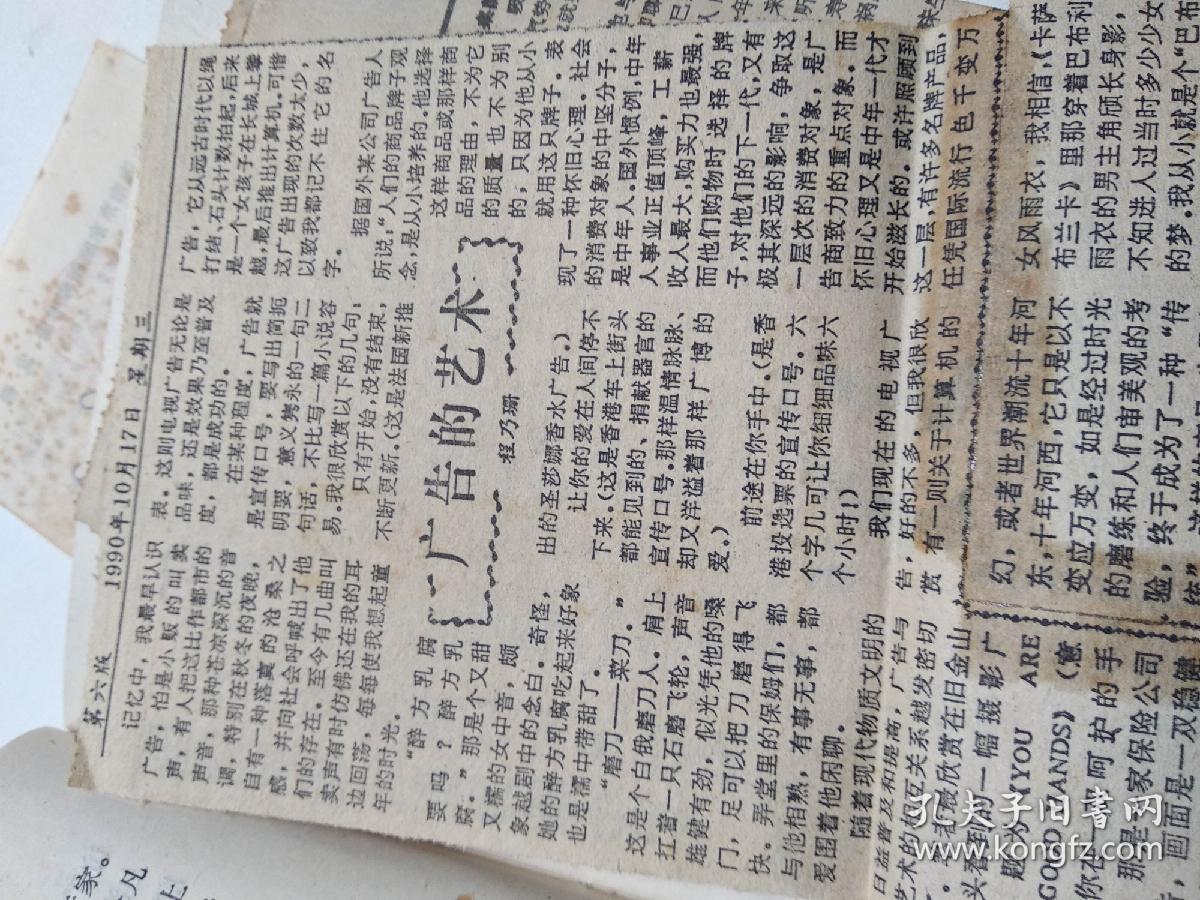 第六版
1990年10月17日 星期三
广告的艺术
程乃珊
记忆中，我最早认识
广告，怕是小贩的叫卖
声，有人把这比作都市的
声音，那种苍凉深沉的音
调，特别在秋冬的夜晚，
自有一种落寞的沧桑之
感，并向社会呼喊出了他
们的存在。至今有几曲叫
卖声有时仿佛还在我的耳
边回荡，每每使我想起童
年的时光。
“醉方乳腐
要吗？醉方乳
腐。”那是个又甜
又懦的女中音，颇
象越剧中的念白。奇怪，
她的醉方乳腐吃起来好象
也是濡中带甜了。
“磨刀——菜刀。”
这是个白俄磨刀人。肩上
扛着一只石磨飞轮，声音
雄健有劲，似光凭他的嗓
门，足可以把刀磨得飞
快。弄堂里的保姆们，都
与他相熟，有事无事，都
爱围着他闲聊。
随着现代物质文明的
日益普及和提高，广告与
艺术的相互关系越发密切
。笔者最欣赏在旧金山
头看到的一幅摄影广
题为《YOU ARE
GOOD HANDS》（意
你在一双呵护的手
那是一家保险公司
，画面是一双稳健
表。这则电视广告无论是
品味，还是效果乃至普及
度，都是成功的。
在某种程度，广告就
是宣传口号，要写出简扼
明要，意义隽永的一句二
句话，不比写一篇小说容
易。我很欣赏以下的几句，
只有开始，没有结束，
不断更新。（这是法国新推
出的圣莎娜香水广告。）
让你的爱在人间停不
下来。（这是香港车上街头
都能见到的、捐献器官的
宣传口号。那样温情脉脉、
却又洋溢着那样广博的
爱。）
前途在你手中。（是香
港投选票的宣传口号。六
个字几可让你细细品味六
个小时！）
我们现在的电视广
告，好的不多，但我很欣
赏有一则关于计算机的
广告，它从远古时代以绳
打结、石头计数拍起，后来
是一个女孩子在长城上攀
越，最后推出计算机。可惜
这广告出现的次数太少，
以致我都记不住它的名
字。
据国外某公司广告人
所说，“人们的商品牌子观
念，是从小培养的。他选择
这样商品或那样商
品的理由，不为它
的质量也不为别
的，只因为他从小
就用这只牌子。表
现了一种怀旧心理。社会
的消费对象的中坚分子，
是中年人。国外惯例，中年
人事业正值顶峰，工薪
收入最大，购买力也最强，
而他们购物时选择的牌
子，对他们的下一代，又有
极其深远的影响，争取这
一层次的消费对象，是广
告商致力的重点对象。而
怀旧心理又是中年一代才
开始滋长的。或许照顾到
这一层，有许多名牌产品，
任凭国际流行色千变万
幻，或者世界潮流十年河
东，十年河西，它只是以不
变应万变，如是经过时光
的磨练和人们审美观的考
验，终于成为了一种“传
女风雨衣，我相信，《卡萨
布兰卡》里那穿着巴布利
雨衣的男主角颀长身影，
不知进入过当时多少少女
的梦。我从小就是个“巴布
孔夫子旧书网
www.kongfz.com